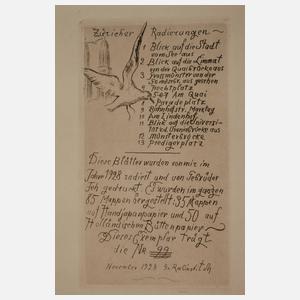 Züricher Radierungen
1 Blick auf die Stadt
vom See aus
2 Blick auf die Limmat
von der Quaibrücke aus
3 Grossmünster von der
aus gesehen
4
5 6 7 Am Quai
8 Paradeplatz
9 Bahnhofstr. Montag
10 Am Lindenhof
11 Blick auf die Universi-
tät v.d. Uraniabrücke aus
12 Münsterbrücke
13 Predigerplatz
Diese Blätter wurden von mir im
Jahr 1928 radiert und von Gebrüder
gedruckt. Es wurden im ganzen
85 Mappen hergestellt: 35 Mappen
auf Handjapanpapier und 50 auf
Holländischem Büttenpapier
Dieses Exemplar trägt
die No 99
November 1928